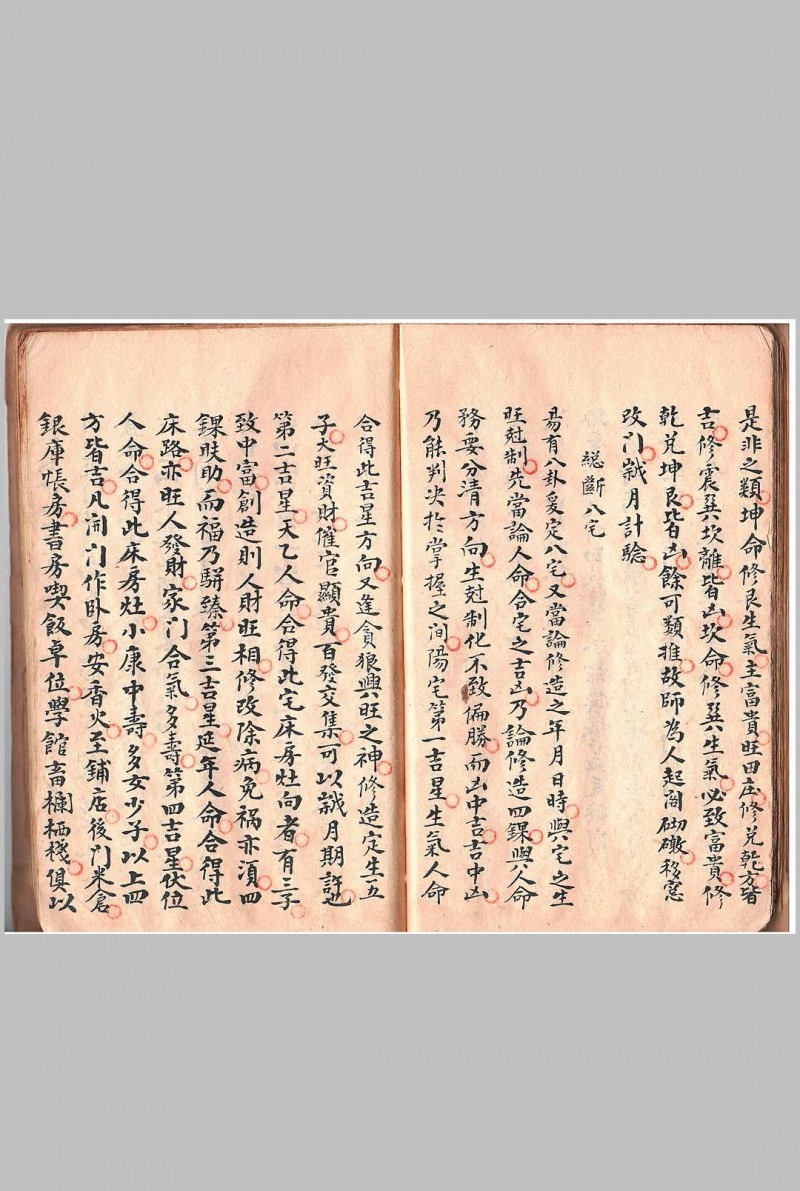 是非之類坤命修艮生氣主富貴旺田庄修兌乾方皆
吉修震巽坎離皆凶坎命修巽生氣必致富貴修
乾兌坤艮皆凶餘可類推故師為人起閣砌礅移窓
改门尅月計驗
総斷八宅
易有八卦爰定八宅又當論修造之年月日時與宅之生
旺尅制先當論人命合宅之吉凶乃論修造四錁與人命
務要分清方向生尅制化不致偏勝而凶中吉吉中凶
乃能判决扵掌握之间陽宅第一吉星生氣人命
合得此吉星方向又逢貪狼興旺之神修造定生五
子大旺資財催官顯貴百發交集可以尅月期許也
第二吉星天乙人命合得此宅床房灶向者有三子
致中富創造則人财旺相修改除病免禍亦湏四
錁助而福乃駢臻第三吉星延年人命合得此
床路亦旺人發財家门合氣多壽第四吉星伏位
人命合得此床房灶小康中壽多女少子以上四
方皆吉凡開门作卧房安香火至鋪店後门米倉
銀庫帳房書房喫飯卓位學館畜欄栖棧俱以